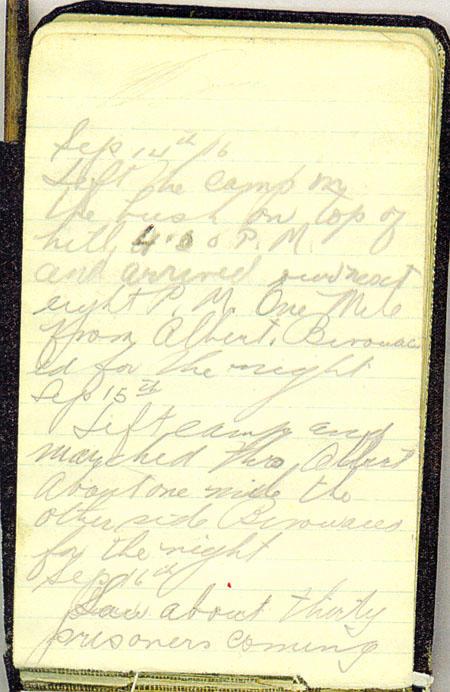 Sep 14th 16
Left the camp in
the bush on top of
hill 4.30 P. M.
and arrived
eight P. M. One Mile
from Albert. Bivouac
ed for the night
Sep 15th
Left camp and
marched thro Albert
About one mile the
other side Bivouaced
for the night
Sep 16th
Saw about thirty
prisoners coming